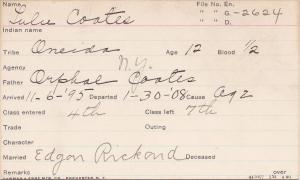 Name Lulu Coates File No. En.
" " G-2624
Indian name " " D.
Tribe Oneida Age 12 Blood 1/2
Agency N.Y.
Father Orphal Coates
Arrived 11-6-'95 Departed 1-30-'08 Cause Age
Class entered 4th Class left 7th
Trade Outing
Character
Married Edgar Rickord Deceased
Remarks over